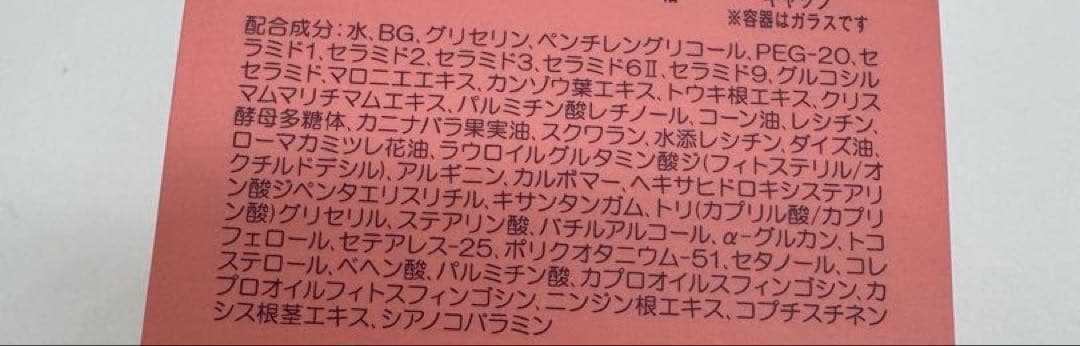 キャップ
※容器はガラスです
配合成分：水、BG、グリセリン、ペンチレングリコール、PEG-20、セ
ラミド1、セラミド2、セラミド3、セラミド6Ⅱ、セラミド9、グルコシル
セラミド、マロニエエキス、カンゾウ葉エキス、トウキ根エキス、クリス
マムマリチマムエキス、パルミチン酸レチノール、コーン油、レシチン、
酵母多糖体、カニナバラ果実油、スクワラン、水添レシチン、ダイズ油、
ローマカミツレ花油、ラウロイルグルタミン酸ジ(フィトステリル/オ
クチルドデシル)、アルギニン、カルボマー、ヘキサヒドロキシステアリ
ン酸ジペンタエリスリチル、キサンタンガム、トリ(カプリル酸/カプリ
ン酸)グリセリル、ステアリン酸、バチルアルコール、α-グルカン、トコ
フェロール、セテアレス-25、ポリクオタニウム-51、セタノール、コレ
ステロール、ベヘン酸、パルミチン酸、カプロオイルスフィンゴシン、カ
プロオイルフィトスフィンゴシン、ニンジン根エキス、コプチスチネン
シス根茎エキス、シアノコバラミン